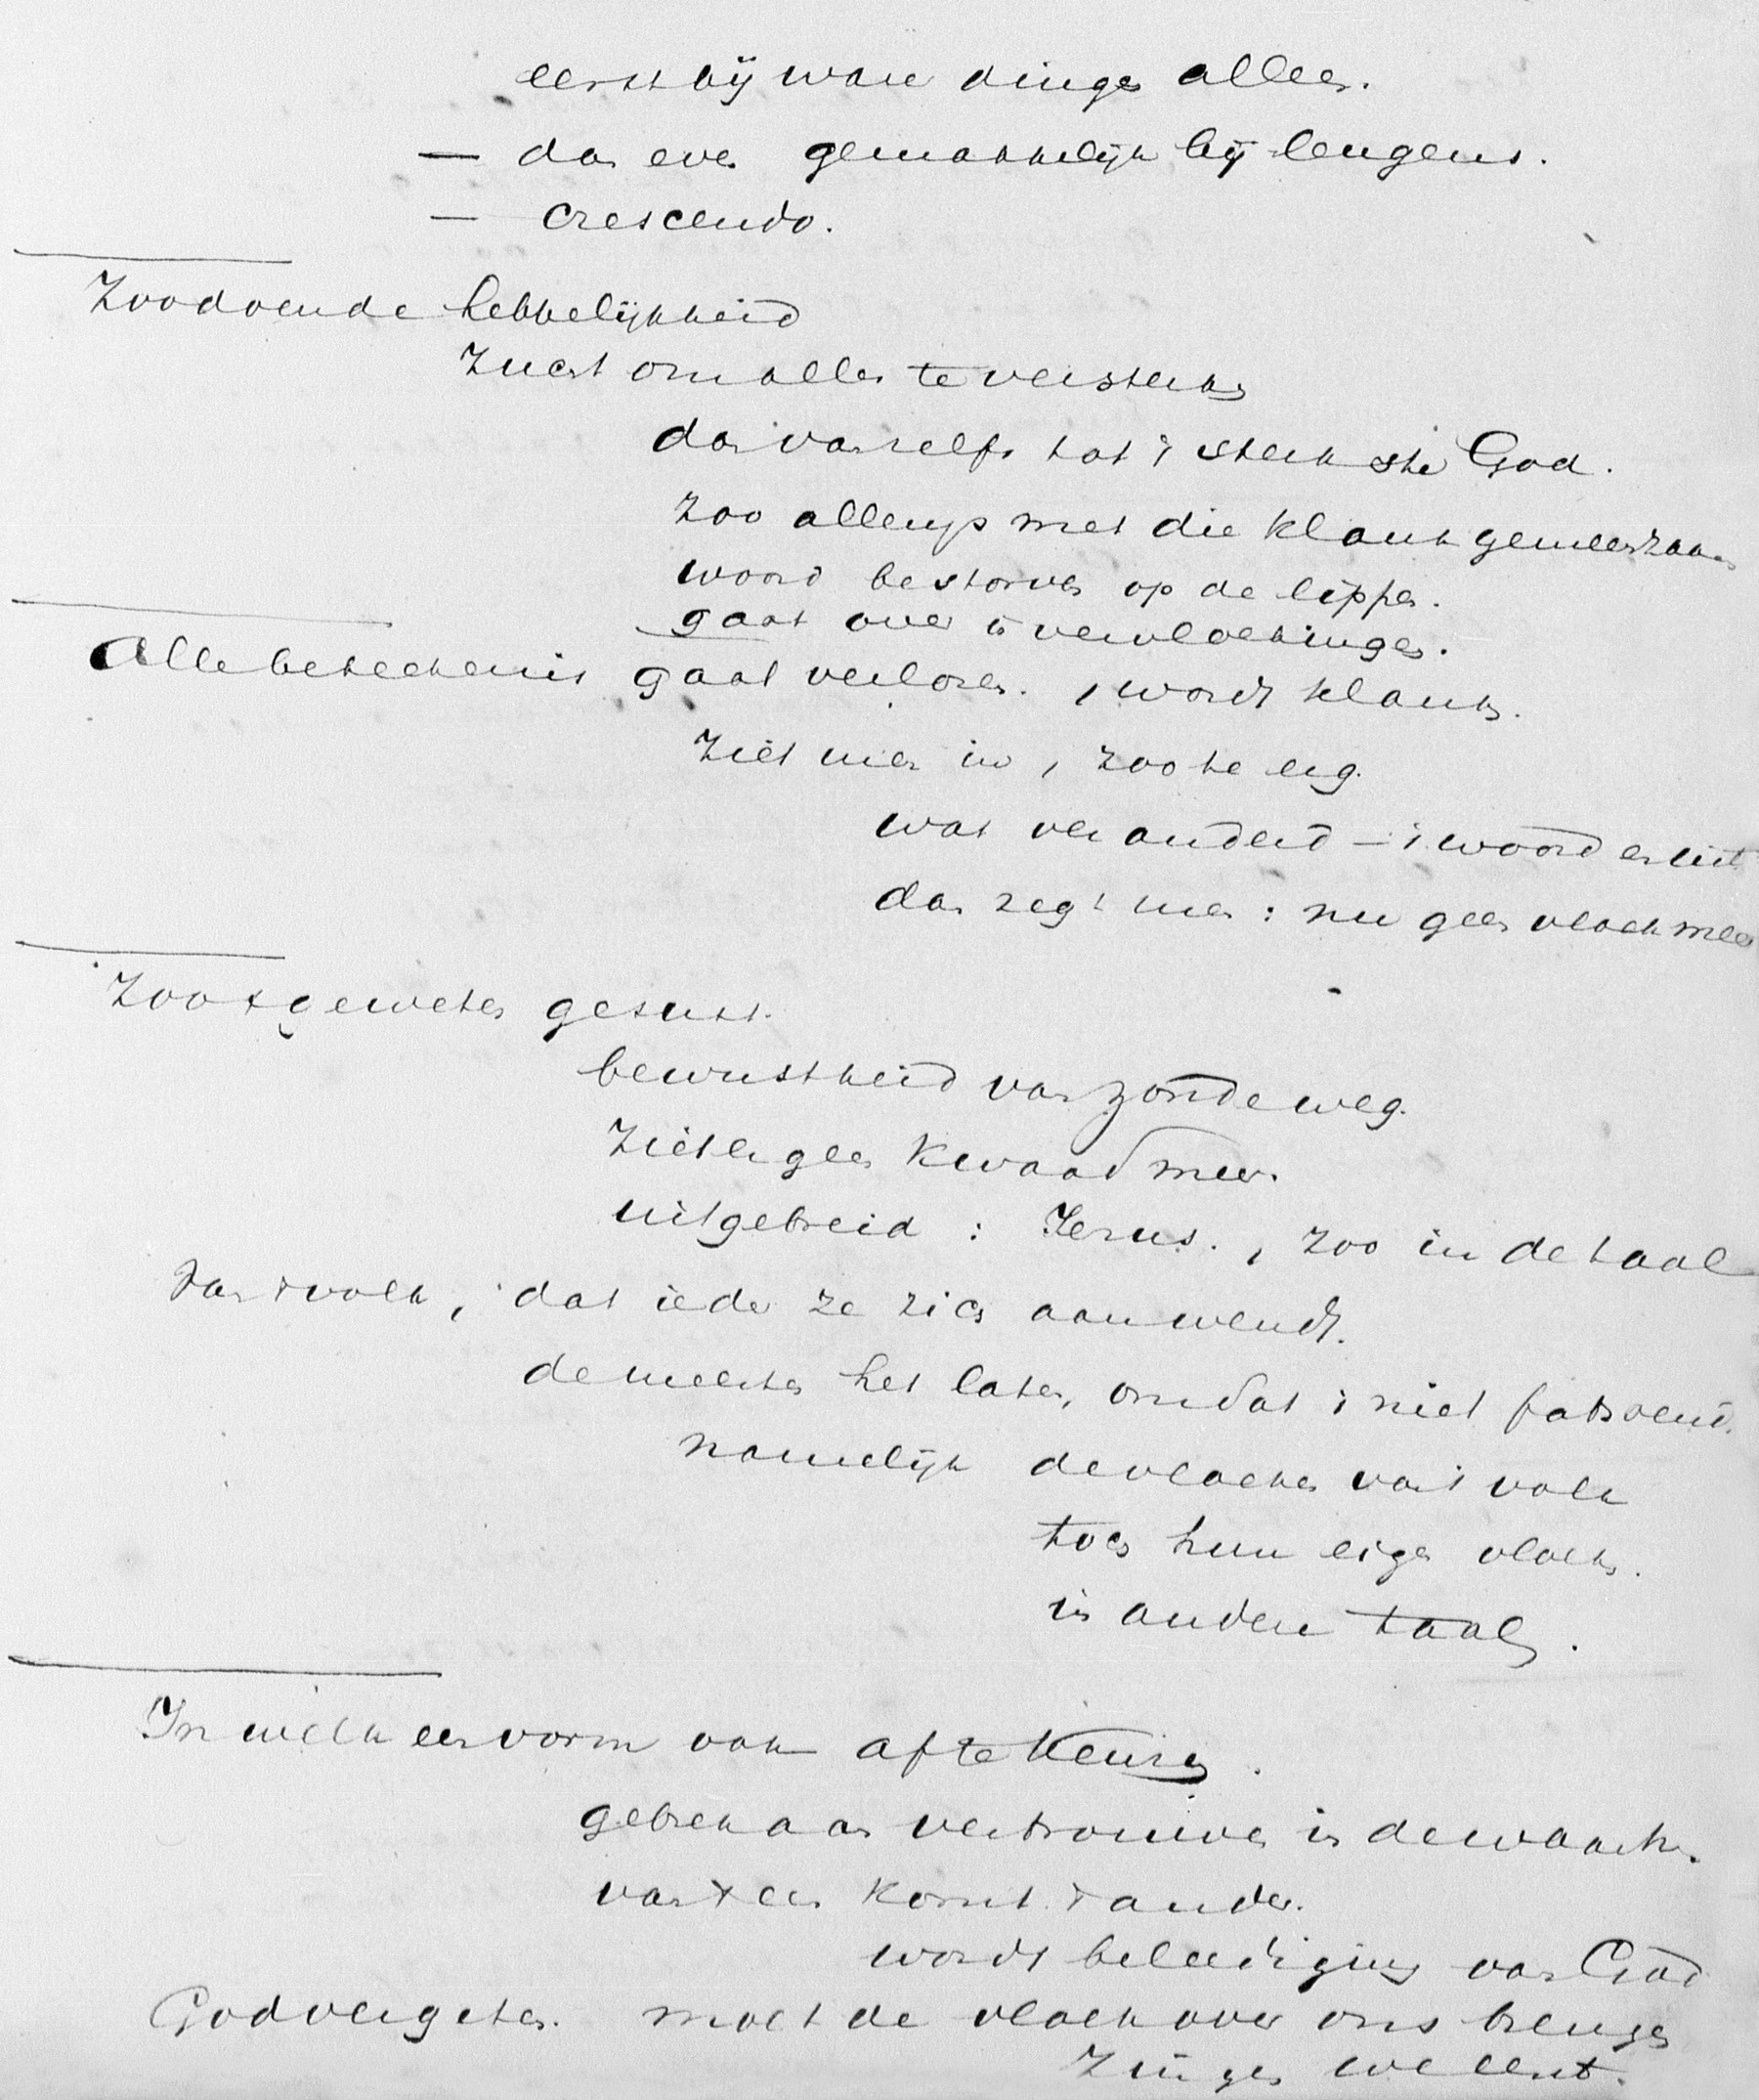 eerst bij ware dingen alleen.
— dan even gemakkelijk bij leugens.
— crescendo.
Zoodoende hebbelijkheid
Zucht om alles te versterken
dan vanzelf tot 't sterkste God.
Zoo allengs met die klank gemeenzaam
woord bestorven op de lippen.
gaat over in vervloekingen.
Alle beteekenis gaat verloren. , wordt klank.
Ziet men in, zoo te leg.
wat veranderd — 't woord eruit
dan zegt men: nu geen vloek meer
Zoo 't geweten gesust.
bewustheid van zonde weg.
Ziet er geen kwaad meer.
uitgebreid: Jerus., zoo in de taal
van 't volk, dat ieder ze zich aanwendt.
de meesten het laten, omdat 't niet fatsoend.
namelijk de vloeken van 't volk
toch hun eigen vloeken.
in andere taal.
In welk een vorm ook af te keuren.
gebrek aan vertrouwen in de waarh.
van 't een komt 't ander.
wordt beleediging van God
Godvergeten. moet de vloek over ons brengen
Zingen we eerst.